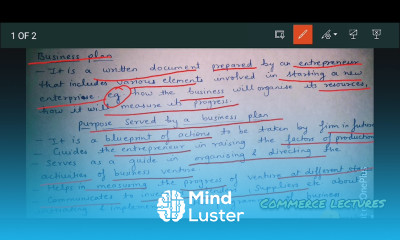 1 OF 2
Business plan
- It is a written document prepared by an entrepreneur
that includes various elements involved in starting a new
enterprise eg how the business will organise its resources,
how it will measure its progress.
Purpose Served by a business plan
- It is a blueprint of actions to be taken by firm in future
- Guides the entrepreneur in raising the factors of production
- Serves as a guide in organizing & directing the
activities of business venture
- Helps in measuring the progress of venture at different
Communicates to Suppliers etc about
of business
Mind
Luster
COMMERCE LECTURES